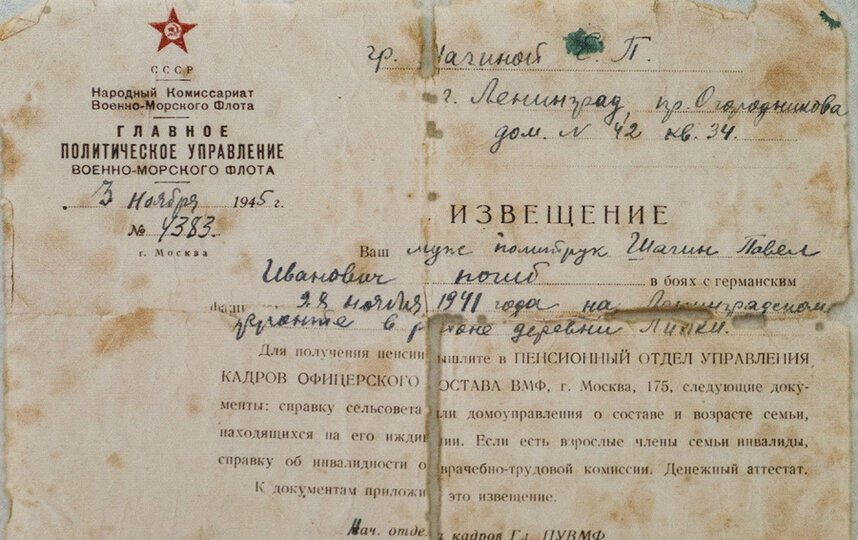 СССР
Народный Комиссариат
Военно-Морского Флота
ГЛАВНОЕ
ПОЛИТИЧЕСКОЕ УПРАВЛЕНИЕ
ВОЕННО-МОРСКОГО ФЛОТА
3 ноября 1945 г.
№ 4383.
г. Москва
гр. Шагиной Е. П.
г. Ленинград, пр. Огородникова
дом. N 42 кв. 34.
ИЗВЕЩЕНИЕ
Ваш муж политрук Шагин Павел
Иванович погиб в боях с германским
ноября 1941 года на Ленинградском
фронте в районе деревни Липки.
Для получения пенсии вышлите в ПЕНСИОННЫЙ ОТДЕЛ УПРАВЛЕНИЯ
КАДРОВ ОФИЦЕРСКОГО СОСТАВА ВМФ, г. Москва, 175, следующие доку-
менты: справку сельсовета или домоуправления о составе и возрасте семьи,
находящихся на его иждивении. Если есть взрослые члены семьи инвалиды,
справку об инвалидности от врачебно-трудовой комиссии. Денежный аттестат.
К документам приложить это извещение.
Нач. отдела кадров Гл. ПУВМФ